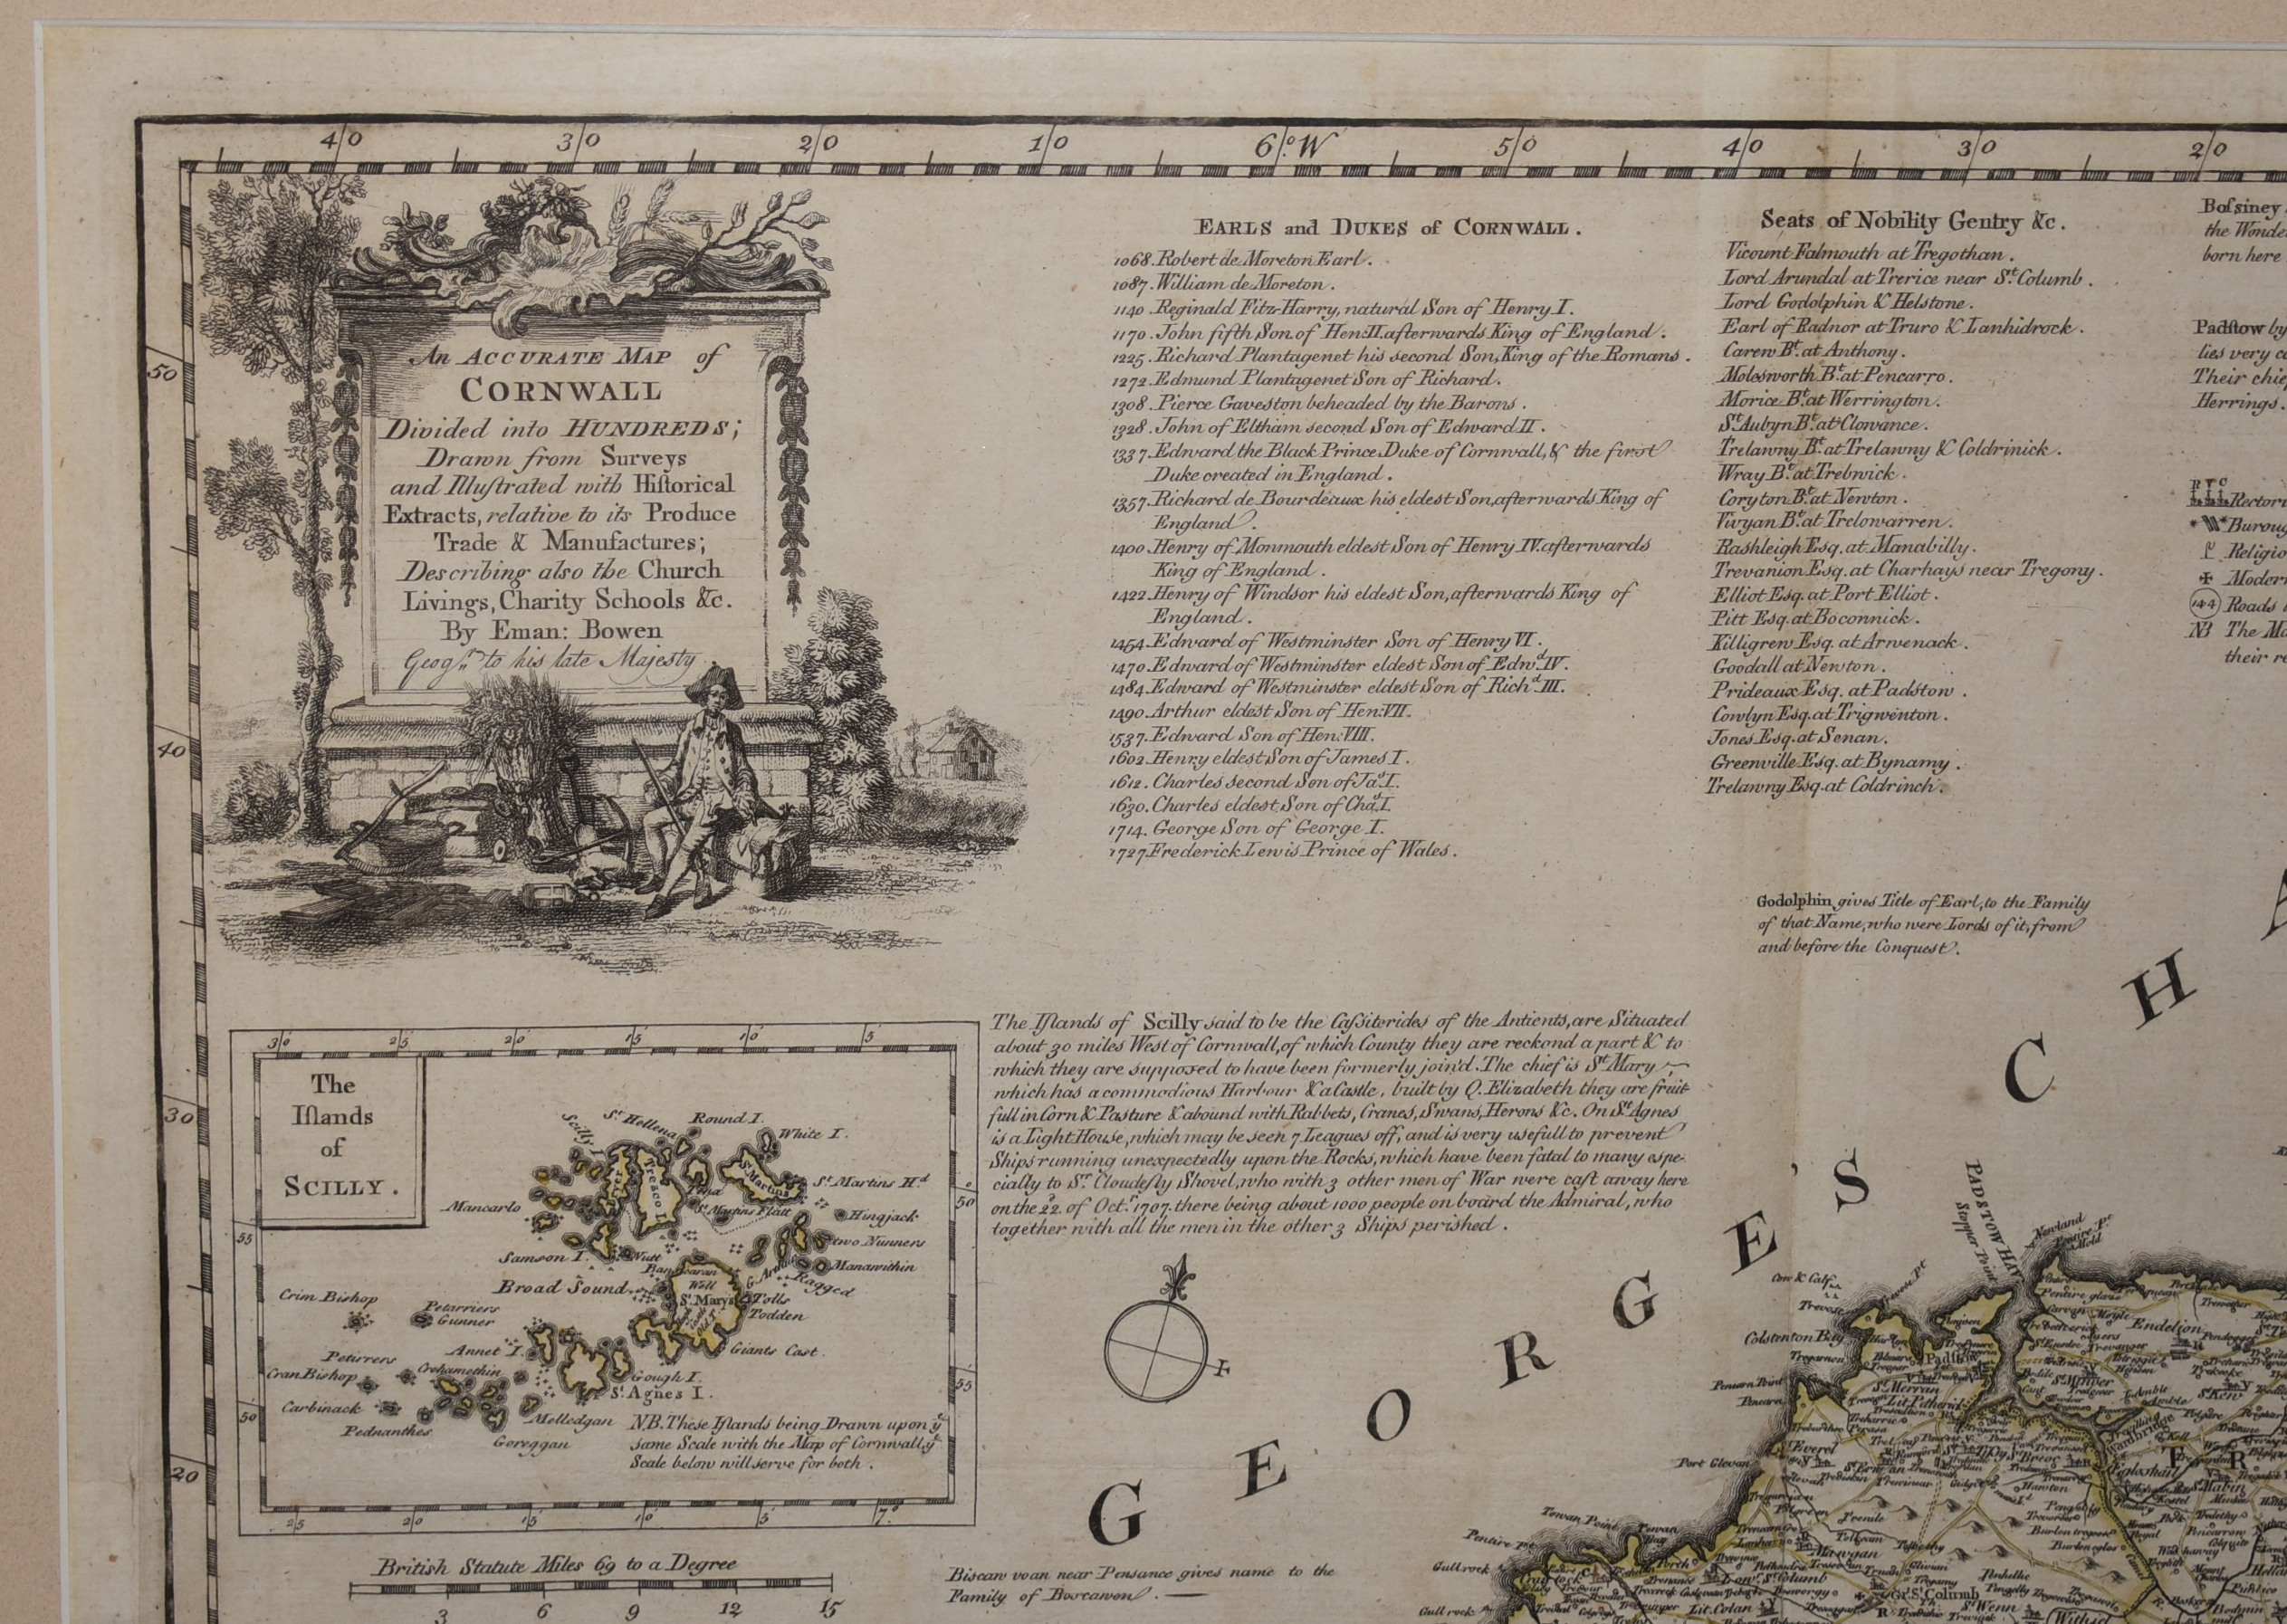 4/0 3/0 2/0 1/0 6/°W 5/0 4/0 3/0 2/0
50
40
30
20
An ACCURATE MAP of
CORNWALL
Divided into HUNDREDS;
Drawn from Surveys
and Illuſtrated with Hiſtorical
Extracts, relative to its Produce
Trade & Manufactures;
Describing also the Church
Livings, Charity Schools &c.
By Eman: Bowen
Geogr. to his late Majesty.
EARLS and DUKES of CORNWALL.
1068. Robert de Moreton Earl.
1087. William de Moreton.
1140. Reginald Fitz-Harry, natural Son of Henry I.
1170. John fifth Son of Hen: II. afterwards King of England.
1225. Richard Plantagenet his second Son, King of the Romans.
1272. Edmund Plantagenet Son of Richard.
1308. Pierce Gaveston beheaded by the Barons.
1328. John of Eltham second Son of Edward II.
1337. Edward the Black Prince Duke of Cornwall, & the first
Duke created in England.
1357. Richard de Bourdeaux his eldest Son, afterwards King of
England.
1400. Henry of Monmouth eldest Son of Henry IV. afterwards
King of England.
1422. Henry of Windsor his eldest Son, afterwards King of
England.
1454. Edward of Westminster Son of Henry VI.
1470. Edward of Westminster eldest Son of Edwd. IV.
1484. Edward of Westminster eldest Son of Richd. III.
1490. Arthur eldest Son of Hen: VII.
1537. Edward Son of Hen: VIII.
1602. Henry eldest Son of James I.
1612. Charles second Son of Jas. I.
1630. Charles eldest Son of Chas. I.
1714. George Son of George I.
1727 Frederick Lewis Prince of Wales.
Seats of Nobility Gentry &c.
Vicount Falmouth at Tregothan.
Lord Arundal at Trerice near St. Columb.
Lord Godolphin & Helstone.
Earl of Radnor at Truro & Lanhidrock.
Carew Bt. at Anthony.
Molesworth Bt. at Pencarro.
Morice Bt. at Werrington.
St. Aubyn Bt. at Clowance.
Trelawny Bt. at Trelawny & Coldrinick.
Wray Bt. at Trebwick.
Coryton Bt. at Newton.
Vivyan Bt. at Trelowarren.
Rashleigh Esq. at Manabilly.
Trevanion Esq. at Charhays near Tregony.
Elliot Esq. at Port Elliot.
Pitt Esq. at Boconnick.
Killigrew Esq. at Arwenack.
Goodall at Newton.
Prideaux Esq. at Padstow.
Cowlyn Esq. at Trigwenton.
Jones Esq. at Senan.
Greenville Esq. at Bynamy.
Trelawny Esq. at Coldrinch.
Boſsiney
the Wonde
born here
Padstow by
lies very c
Their chie
Herrings.
R V C
Rectori
Buroug
Religio
Moder
144 Roads
NB The Ma
their re
Godolphin gives Title of Earl, to the Family
of that Name, who were Lords of it, from
and before the Conquest.
The Iſlands of Scilly said to be the Caſsiterides of the Antients, are Situated
about 30 miles West of Cornwall, of which County they are reckond a part & to
which they are supposed to have been formerly join'd. The chief is St. Mary
which has a commodious Harbour & a Castle, built by Q. Elizabeth they are fruit-
full in Corn & Pasture & abound with Rabbets, Cranes, Swans, Herons &c. On St. Agnes
is a Light House, which may be seen 7 Leagues off, and is very usefull to prevent
Ships running unexpectedly upon the Rocks, which have been fatal to many espe-
cially to Sr. Cloudeſly Shovel, who with 3 other men of War were caſt away here
on the 22. of Octr. 1707. there being about 1000 people on board the Admiral, who
together with all the men in the other 3 Ships perished.
The
Iſlands
of
SCILLY.
3/0 25 20 15 10 5
Scilly I.
St. Hellena
Round I.
White I.
Tresco I.
St. Martins
St. Martins Hd.
St. Martins Flatt
Mancarlo
Hingjack
two Nunners
Samson I.
Nutt
Manawithin
Ragged
Broad Sound
Well
St. Marys
Tolls
Todden
Giants Cast.
Crim Bishop
Petarriers
Gunner
Annet I.
Petirrers
Crehamethin
Cran Bishop
Gough I.
St. Agnes I.
Carbinack
Melledgan
Pednanthes
Goreggan
N.B. These Iſlands being Drawn upon ye
same Scale with the Map of Cornwall, ye
Scale below will serve for both.
55
50
50
55
25 20 15 10 5 7.
British Statute Miles 69 to a Degree
3 6 9 12 15
Biscaw voan near Pensance gives name to the
Family of Boscawen.
GEORGE'S
CHA
PADSTOW HAV
Stepper Point
Newland
Cow & Calf
Trevose
Colstenton Bay
Port Glevan
Towan Point
Gull rock
Gull rock
Endelion
Padstow
St. Merran
St. Everel
Mawgan
St. Columb
St. Wenn
Lit. Colan
St. Mabin
St. Kew